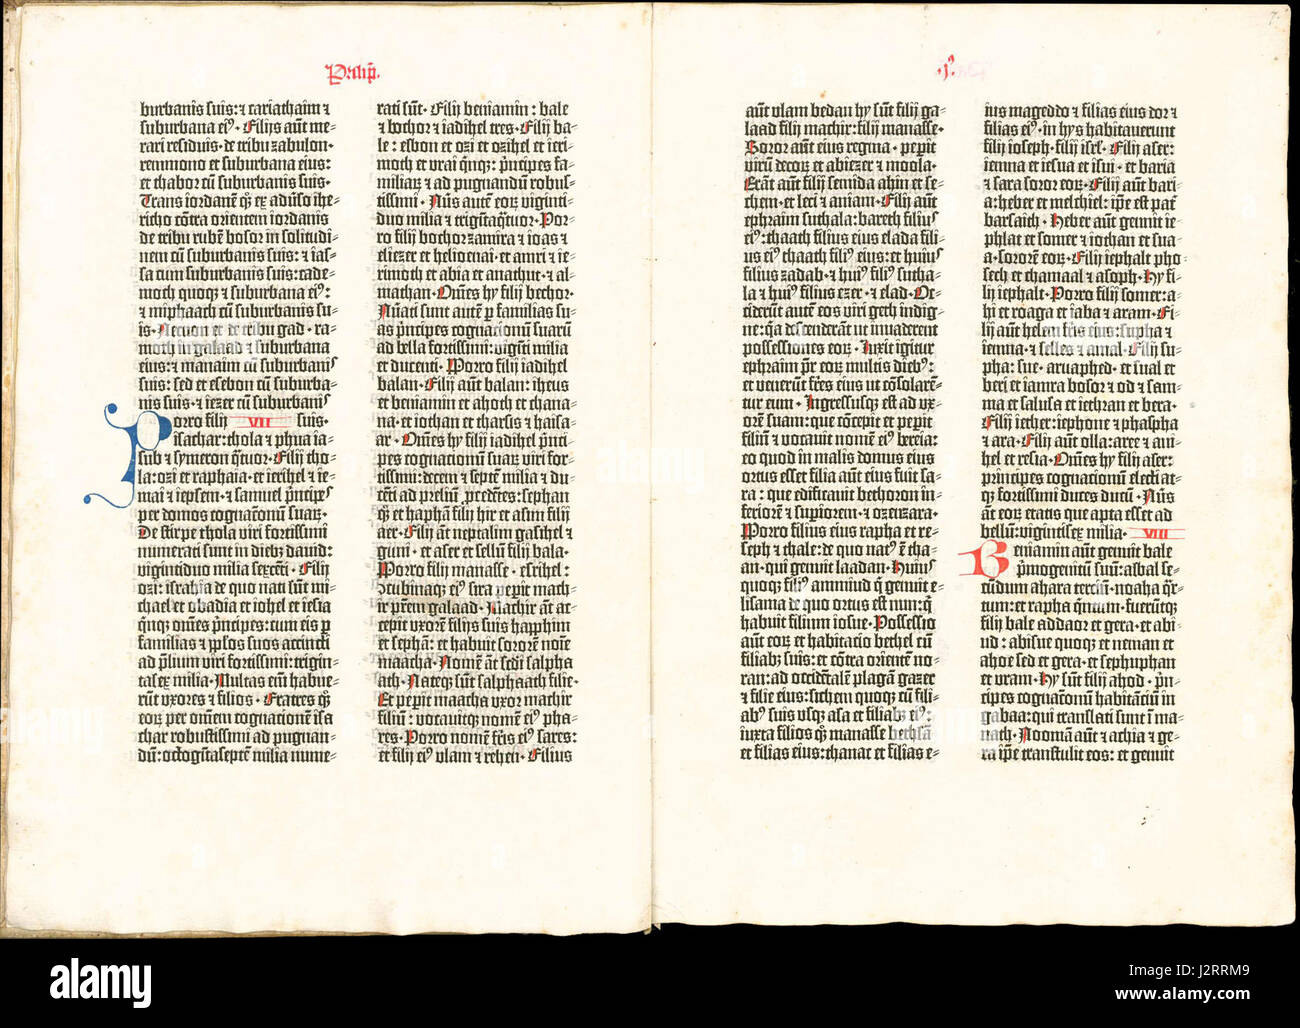 Paralip̄.
burbanis suis: ⁊ cariathaim ⁊
suburbana eiꝰ. Filijs aūt me-
rari residuis· de tribu zabulon·
remmono et suburbana eius:
et thabor cū suburbanis suis.
Trans iordanē q̄ꝫ ex aduso ihe-
richo cōtra orientem iordanis
de tribu rubē bosor in solitudi-
nem cū suburbanis suis: ⁊ ias-
sa cum suburbanis suis: cade-
moth quoqꝫ ⁊ suburbana eiꝰ:
⁊ miphaath cū suburbanis su-
is. Necnon et de tribu gad· ra-
moth in galaad ⁊ suburbana
eius: ⁊ manaim cū suburbanis
suis: sed et esebon cū suburba-
nis suis· ⁊ iezer cū suburbanis
Porro filij VII suis.
isachar: thola ⁊ phua ia-
sub ⁊ symeron q̄tuor. Filij tho-
la: ozi et raphaia· et ierihel ⁊ ie-
mai ⁊ iepsem· ⁊ samuel p̄ncipes
per domos cognac̄onū suaꝝ.
De stirpe thola viri fortissimi
numerati sunt in diebꝫ dauid:
vigintiduo milia sexcēti. Filij
ozi: israhia· de quo nati sūt mi-
chael et obadia et iohel et iesia
q̄nqꝫ om̄es p̄ncipes: cum eis ꝑ
familias ⁊ ipl̄os suos accincti
ad p̄lium viri fortissimi: trigin-
tasex milia. Multas em̄ habue-
rūt vxores ⁊ filios. Fratres qꝫ
eoꝝ per om̄em cognac̄onē isa
char robustissimi ad pugnan-
dū: octogītaseptē milia nume-
rati sūt. Filij beniamin: bale
⁊ bochor ⁊ iadihel tres. Filij ba-
le: esbon et ozi et ozihel et ieri-
moth et vrai q̄nqꝫ: p̄ncipes fa-
miliaꝝ ⁊ ad pugnandū robus-
tissimi. Nūs autē eoꝝ viginti-
duo milia ⁊ trigītaq̄tuor. Por-
ro filij bochor: zamira ⁊ ioas ⁊
eliezer et helioenai· et amri ⁊ ie-
rimoth et abia et anathut· ⁊ al-
mathan. Om̄es hij filij bechor.
Nūati sunt autē ꝑ familias su-
as p̄ncipes cognac̄onum suarū
ad bella fortissimi: vigīti milia
et ducenti. Porro filij iadihel
balan. Filij aūt balan: iheus
et beniamin et ahoth et chana-
na· et iothan et tharsis ⁊ haisa-
ar. Om̄es hij filij iadihel p̄nci-
pes cognac̄onū suaꝝ viri for-
tissimi: decem et septē milia ⁊ du-
cēti ad preliū ꝓcedētes: sephan
q̄ꝫ et haphā filij hir et asim filij
aer. Filij aūt neptalim gasihel ⁊
guni· et aser et sellū filij bala.
Porro filij manasse· esrihel:
Concubinaqꝫ eiꝰ sira peperit mach-
ir prēm galaad. Machir aūt ac-
cepit vxorē filijs suis happhim
et sephā: et habuit sororē noīe
maacha. Nomē aūt scdi salpha
ath. Nateqꝫ sūt salphaath filie.
Et peperit maacha vxor machir
filiū: vocauitqꝫ nomē eiꝰ pha-
res. Porro nomē fr̄is eiꝰ sares:
et filij eiꝰ vlam ⁊ rehen. Filius
.I.
7
aūt vlam bedan hij sūt filij ga-
laad filij machir: filij manasse.
Soror aūt eius regina· peperit
virū decoꝝ et abiezer ⁊ moola.
Erāt aūt filij semida ahin et se-
chem· et leci ⁊ aniam. Filij aūt
ephraim suthala: bareth filius
eiꝰ: thaath filius eius elada fili-
us eiꝰ thaath filiꝰ eius: et huiꝰ
filius zadab· ⁊ huiꝰ filiꝰ sutha-
la ⁊ huiꝰ filius ezer· ⁊ elad. Oc-
ciderūt autē eos viri geth indige-
ne: qa descenderant ut inuaderent
possessiones eoꝝ. Luxit igitur
ephraim pr̄ eoꝝ multis diebꝫ:
et venerūt fr̄es eius ut cōsolarē-
tur eum. Ingressusqꝫ est ad vx-
orē suam: que cōcepit et peperit
filiū ⁊ vocauit nomē eiꝰ bereia:
eo quod in malis domus eius
ortus esset filia aūt eius fuit sa-
ra: que edificauit bethoron in-
feriorē ⁊ supiorem· ⁊ ozenzara.
Porro filius eius rapha et re-
seph ⁊ thale: de quo natꝰ ē tha-
an· qui genuit laadan. Huius
quoqꝫ filiꝰ amniud q̄ genuit e-
lisama de quo ortus est nun: q̄
habuit filium iosue. Possessio
aūt eoꝝ et habitacio bethel cū
filiabꝫ suis: et cōtra orientē no-
ran: ad occidētalē plagā gazer
⁊ filie eius: sichem quoqꝫ cū fili-
abꝰ suis vsqꝫ asa et filiabꝫ eiꝰ:
iuxta filios q̄ꝫ manasse bethsā
et filias eius: thanat et filias e-
ius mageddo ⁊ filias eius dor ⁊
filias eiꝰ. in hijs habitauerunt
filij ioseph· filij isrl̄. Filij aser:
iemna et iesua et isui· et baria
⁊ sara soror eoꝝ. Filij aūt bari-
a: heber et melchiel: ip̄e est pat̄
barsaith. Heber aūt genuit ie-
phlat et somer ⁊ iothan et sua-
a· sororē eoꝝ. Filij iephalt pho-
sech et chamaal ⁊ asoph. Hij fi-
lij iephalt. Porro filij somer: a-
hi et roaga et iaba ⁊ aram. Fi-
lij aūt helem fr̄is eius: supha ⁊
iemna· ⁊ selles ⁊ amal. Filij su-
pha: sue· aruaphed· et sual et
beri et iamra bosor ⁊ od ⁊ sam-
ma et salusa et iethran et bera.
Filij iether: iephone ⁊ phaspha
⁊ ara. Filij aūt olla: aree ⁊ ani-
hel et resia. Om̄es hij filij aser:
principes cognac̄onū electi at-
qꝫ fortissimi duces ducū. Nūs
aūt eoꝝ etatis que apta esset ad
bellū: vigintisex milia. VIII
Beniamin aūt genuit bale
p̄mogenitū suū: asbal se-
cūdum ahara terciū· noaha q̄r-
tum: et rapha q̄ntum. Fuerūtqꝫ
filij bale addaor et gera· et abi-
ud: abisue quoqꝫ et neman et
ahoe sed et gera· et sephuphan
et vram. Hij sūt filij ahod· p̄n-
cipes cognac̄onū habitāciū in
gabaa: qui translati sunt ī ma-
nath. Nooma aūt ⁊ achia ⁊ ge-
ra ip̄e transtulit eos: et genuit
alamy
Image ID: J2RRM9
www.alamy.com